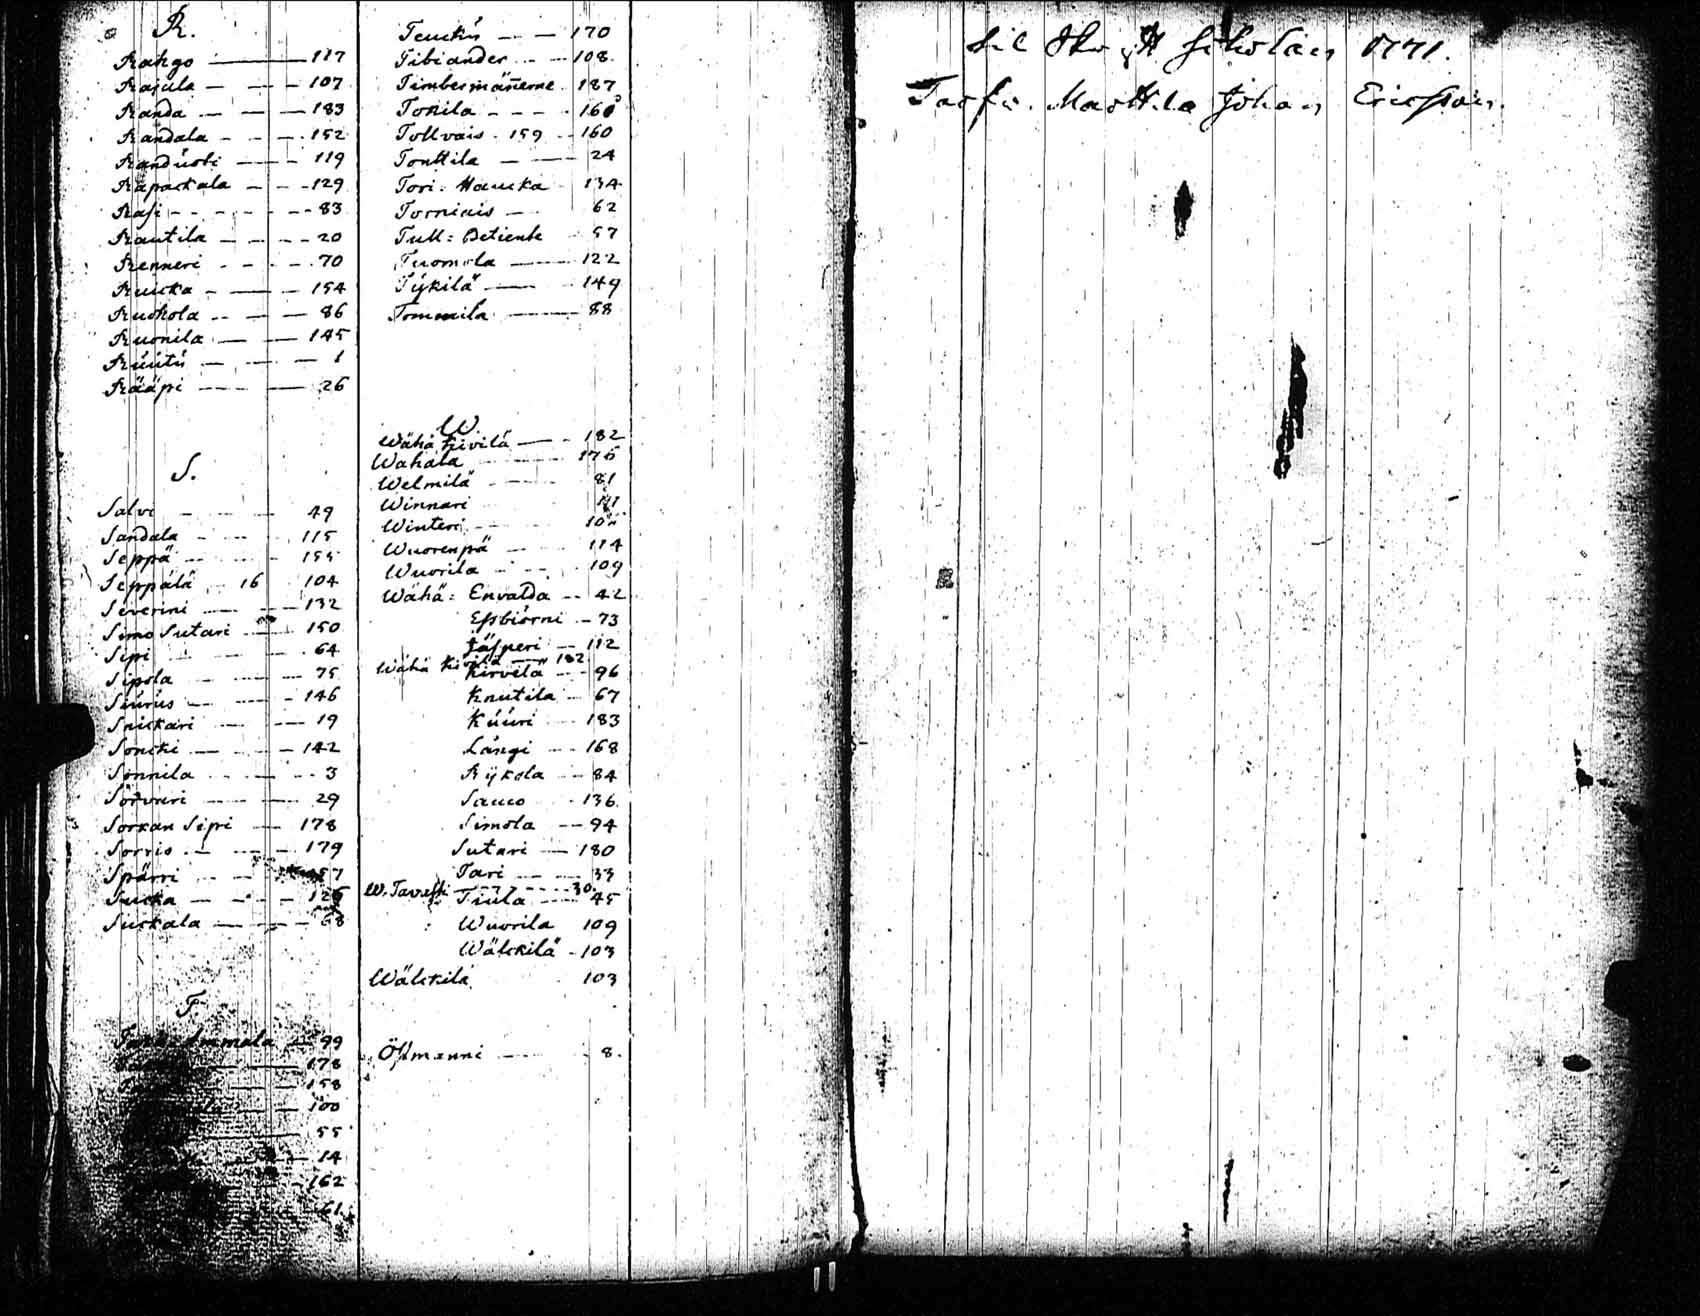 R.
Rahgo 117
Rajula 107
Randa 183
Randala 152
Randúobi 119
Rapackala 129
Rasi 83
Rautila 20
Renneri 70
Ruicka 154
Ruohola 86
Ruonila 145
Rúútú 1
Rääpi 26
S.
Salvi 49
Sandala 115
Seppä 155
Seppälä 16 104
Severini 132
Simo Sutari 150
Sipi 64
Sipola 75
Siúrús 146
Snickari 19
Soncki 142
Sonnila 3
29
Sorkan Sipi 178
Sorris 179
Spärri
Sucka 126
Suckala 68
T.
Ammala 99
178
158
100
55
14
162
61
170
Tibiander 108
Timbermännerne 187
Tokila 160
Tollvais 159 160
Tonttila 24
Tori: Haucka 134
Torniais 62
Tull: Betiente 57
Tuomola 122
Tÿkilä 149
Tommila 88
W
Wähä Kivilä 182
Wahala 176
Welmilä 81
Winnari
Winteri
Wuorenpä 114
Wuorila 109
Wähä: Envalda 42
Essbiörni 73
Jässperi 112
Wähä Kivilä 182
Kirvelä 96
Knutila 67
Kúúri 183
Långi 168
Rÿkola 84
Sauco 136
Simola 94
Sutari 180
Tari 33
W. Tavasti 30
Tiula 45
Wuorila 109
Wälckilä 103
Wälckilä 103
Östmanni 8
1771.
Marttila Johan Ericsson